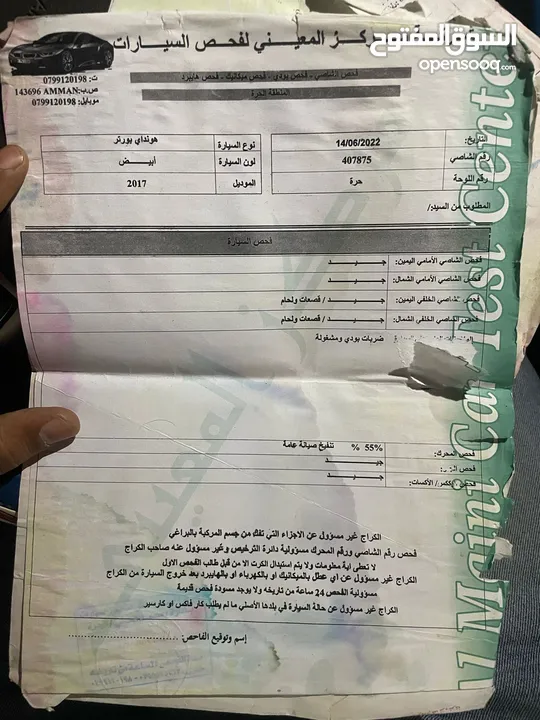 السوق المفتوح
opensooq.com
المعيني لفحص السيارات
ت: 0799120198
ص.ب: 143696 AMMAN
موبايل: 0799120198
فحص الشاصي - فحص بودي - فحص ميكانيك - فحص هايبرد
المنطقة الحرة
التاريخ: 14/06/2022
نوع السيارة هونداي بورتر
رقم الشاصي 407875
لون السيارة أبيض
رقم اللوحة حرة
الموديل 2017
المطلوب من السيد/
فحص السيارة
فحص الشاصي الأمامي اليمين: جيد
فحص الشاصي الأمامي الشمال: جيد
الشاصي الخلفي اليمين: جيد / قصعات ولحام
الشاصي الخلفي الشمال: جيد / قصعات ولحام
ضربات بودي ومشغولة
فحص المحرك: 55% % تنفيخ صيانة عامة
فحص جيد
فحص / الأكسات: جيد
الكراج غير مسؤول عن الاجزاء التي تفك من جسم المركبة بالبراغي
فحص رقم الشاصي ورقم المحرك مسؤولية دائرة الترخيص وغير مسؤول عنه صاحب الكراج
لا تعطى اية معلومات ولا يتم استبدال الكرت الا من قبل طالب الفحص الاول
الكراج غير مسؤول عن أي عطل بالميكانيك أو بالكهرباء او بالهايبرد بعد خروج السيارة من الكراج
مسؤولية الفحص 24 ساعة من تاريخه ولا يوجد مسودة فحص قديمة
الكراج غير مسؤول عن حالة السيارة في بلدها الأصلي ما لم يطلب كار فاكس او كارسير
إسم وتوقيع الفاحص:
Al Maini Car Test Center